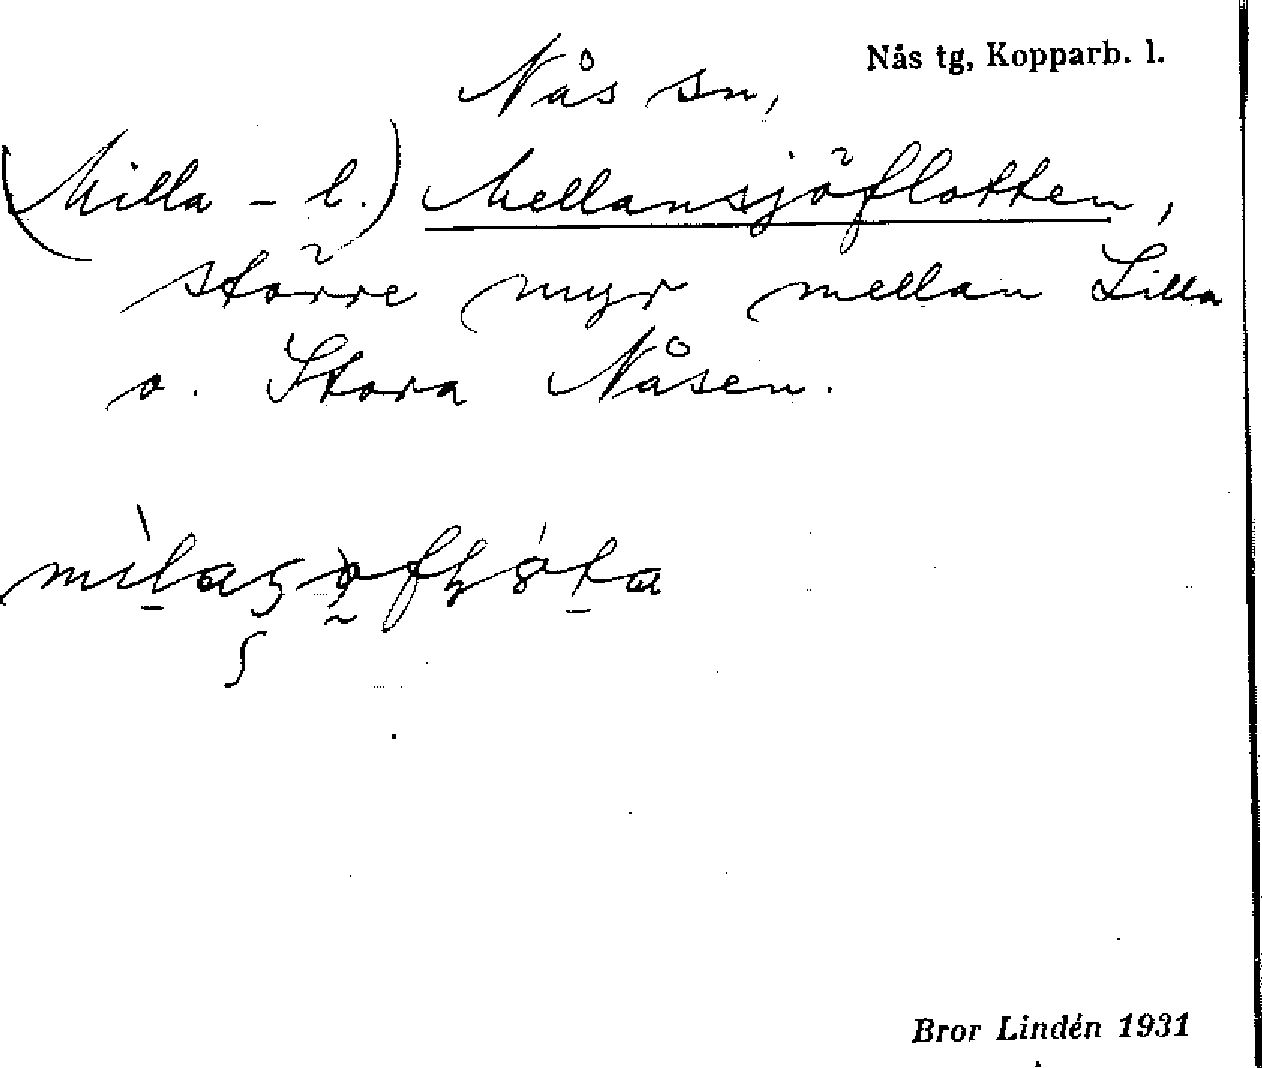 Nås tg, Kopparb. l.
Nås sn,
(Milla - l.) Mellansjöflotten,
större myr mellan Lilla
o. Stora Nåsen.
Bror Lindén 1931